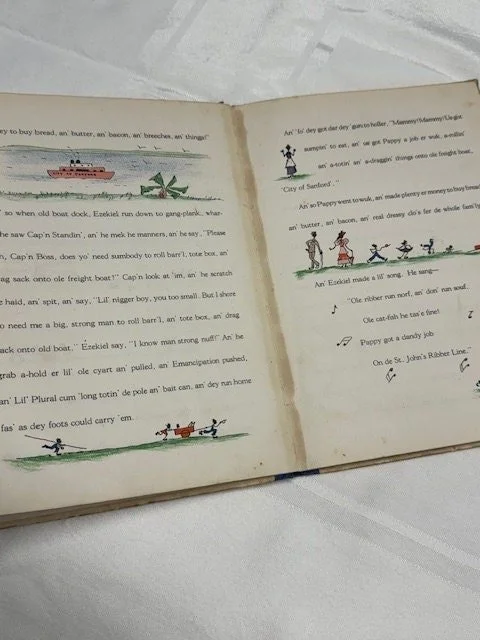 ey to buy bread, an' butter, an' bacon, an' breeches, an' things!"
CITY OF SANFORD
so when old boat dock, Ezekiel run down to gang-plank, whar-
he saw Cap'n Standin', an' he mek he manners, an' he say, "Please
n, Cap'n Boss, does yo' need sumbody to roll barr'l, tote box, an'
ag sack onto ole freight boat?" Cap'n look at 'im, an' he scratch
e haid, an' spit, an' say, "Lil' nigger boy, you too small. But I shore
o need me a big, strong man to roll barr'l, an' tote box, an' drag
ack onto old boat." Ezekiel say, "I know man strong nuff!" An' he
grab a-hold er lil' ole cyart an' pulled, an' Emancipation pushed,
an' Lil' Plural cum 'long totin' de pole an' bait can, an' dey run home
fas' as dey foots could carry 'em.
An' 'lo' dey got dar dey' gun to holler, "Mammy! Mammy! Us got
sumpin' to eat, an' us got Pappy a job er wuk, a-rollin'
an' a-totin' an' a-draggin' things onto ole freight boat,
'City of Sanford'."
An' so Pappy went to wuk, an' made plenty er money to buy bread
an' butter, an' bacon, an' real dressy clo's fer de whole fam'ly
An' Ezekiel made a lil' song. He sang—
"Ole ribber run norf, an' don' run souf,
Ole cat-fish he tas'e fine!
Pappy got a dandy job
On de St. John's Ribber Line."